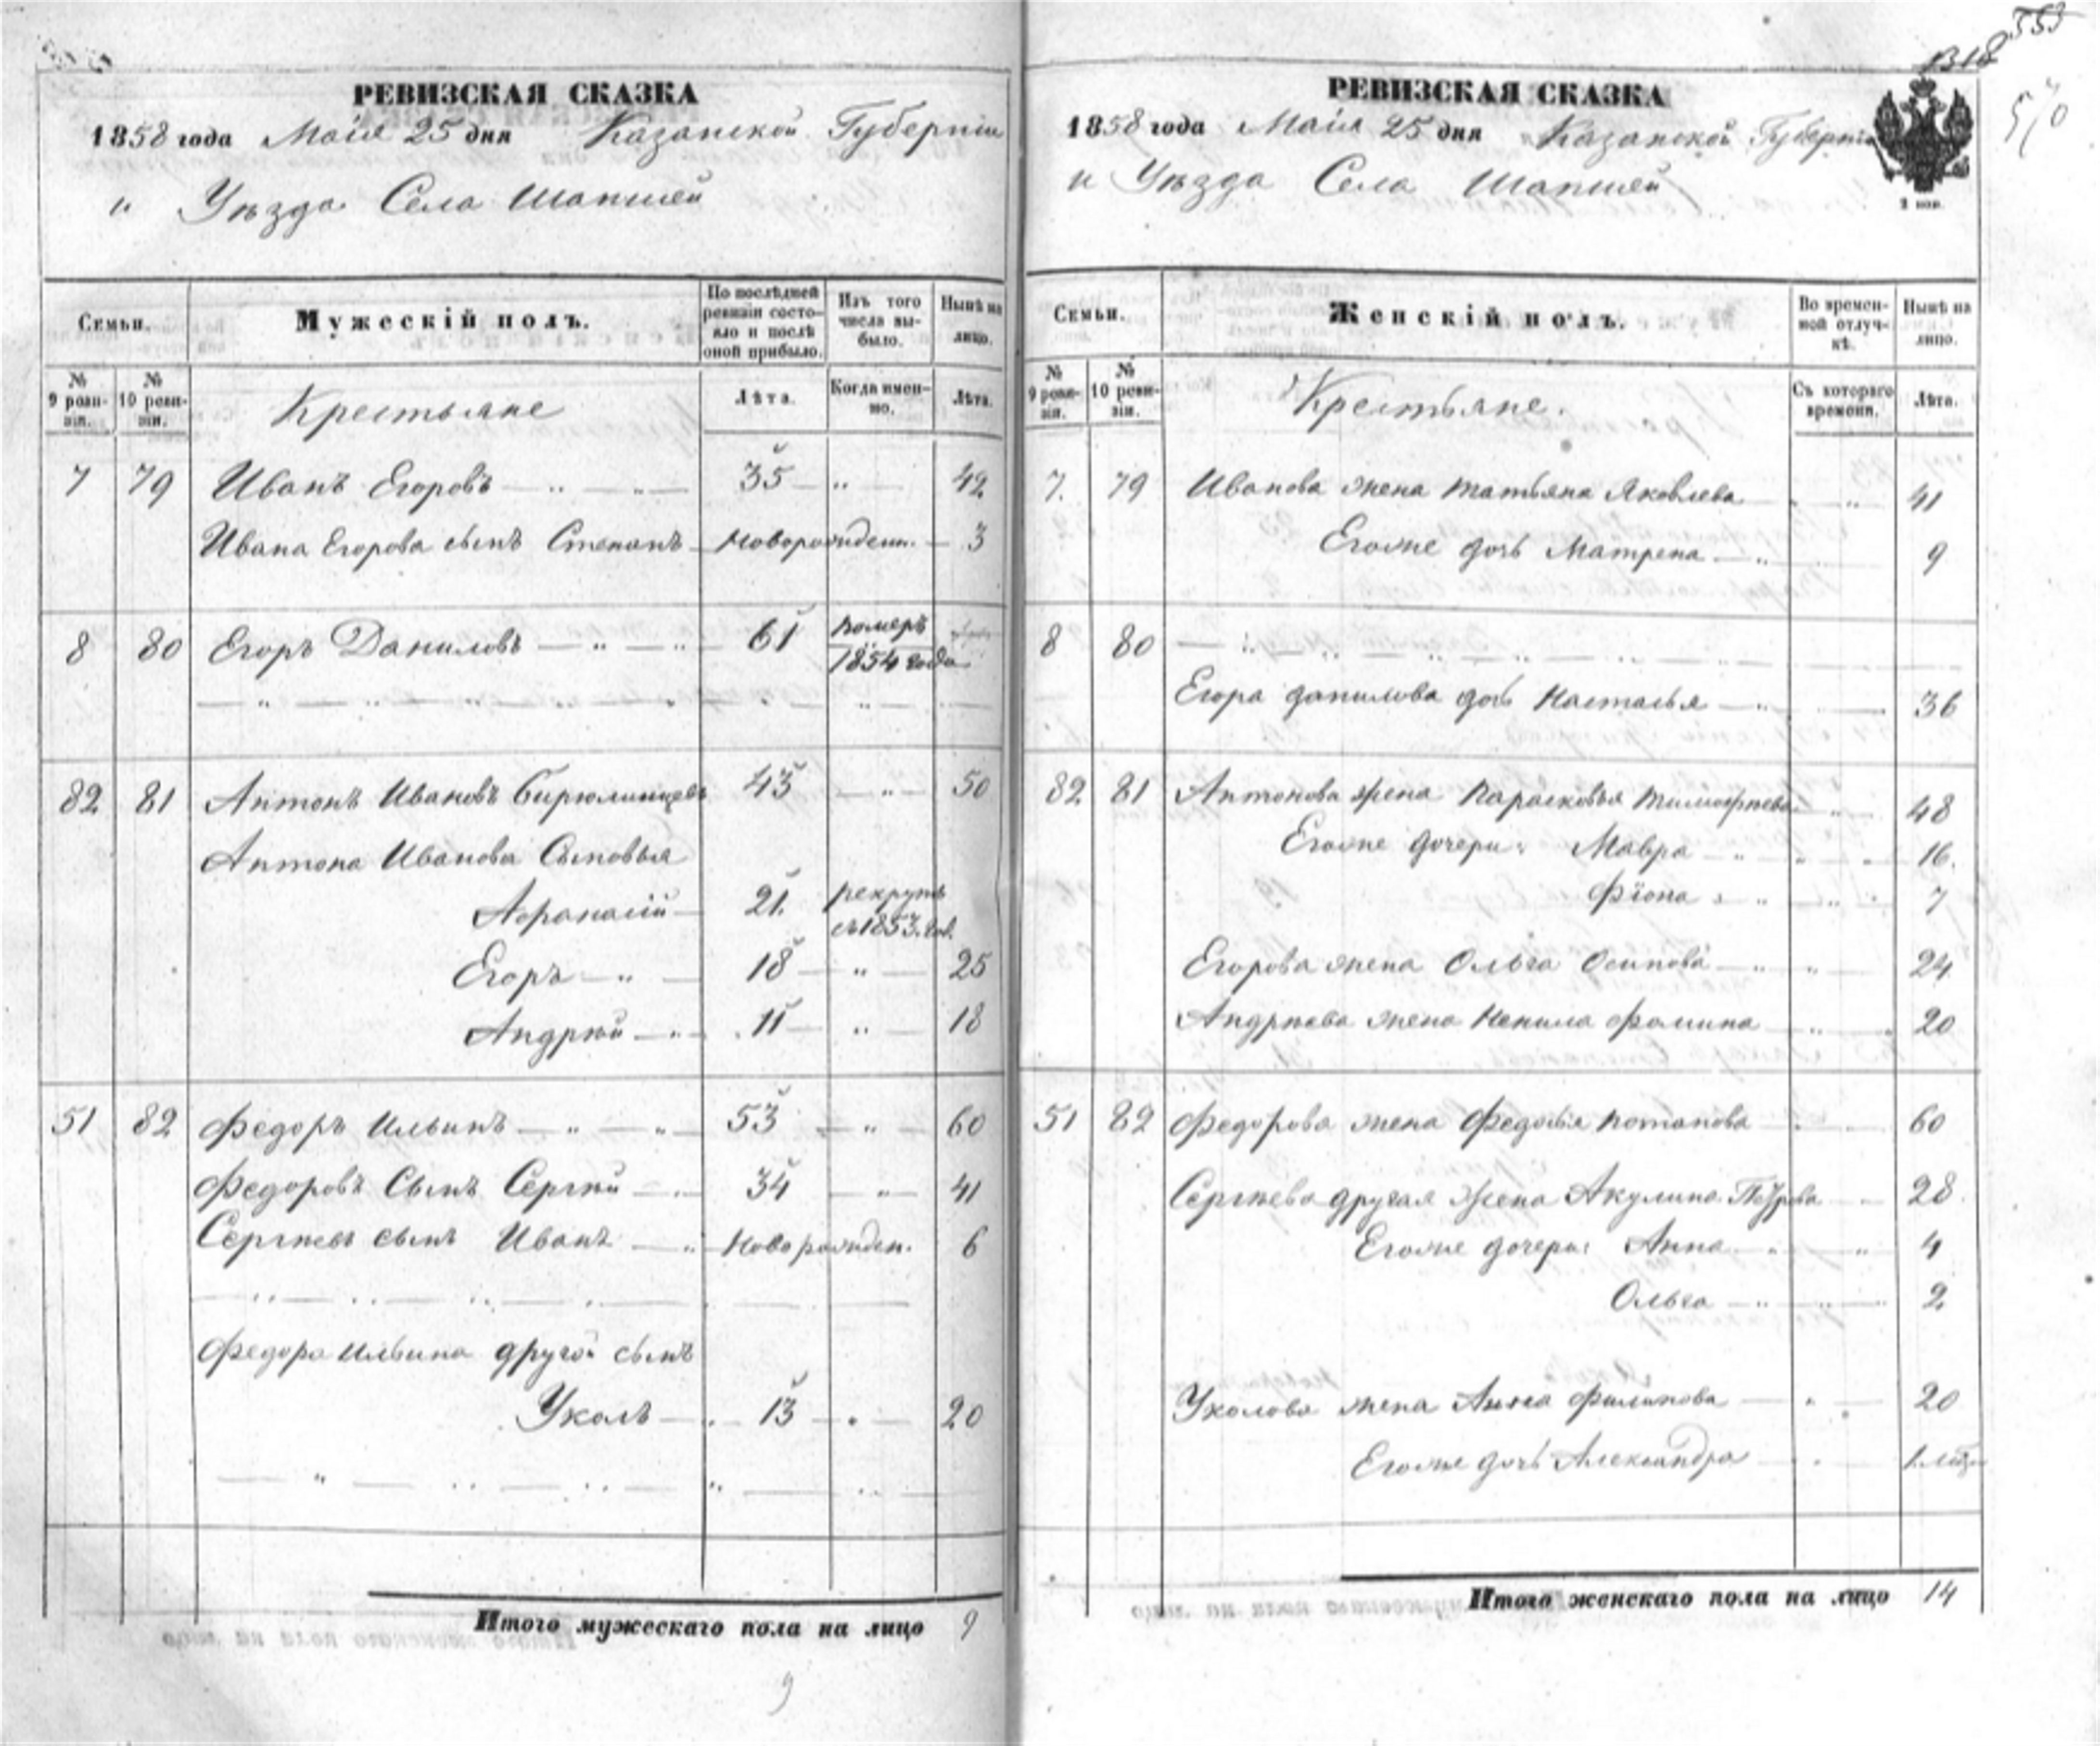 РЕВИЗСКАЯ СКАЗКА
1858 года Маія 25 дня Казанской Губерніи
и Уѣзда Села Шапшей
Семьи.
Мужескій полъ.
По послѣдней ревизіи состояло и послѣ оной прибыло.
Изъ того числа выбыло.
Нынѣ на лицо.
№ 9 ревизіи.
№ 10 ревизіи.
Крестьяне
Лѣта.
Когда именно.
Лѣта.
7 79 Иванъ Егоровъ 35 42
Ивана Егорова сынъ Степанъ Новорожден. 3
8 80 Егоръ Даниловъ 61 померъ
1854 года
82 81 Антонъ Ивановъ Бирюлинцевъ 43 50
Антона Иванова Сыновья
Афранасій 21. рекрутъ
съ 1853. год.
Егоръ 18 25
Андрѣй 11 18
51 82 Федоръ Ильинъ 53 60
Федоровъ Сынъ Сергѣй 34 41
Сергѣевъ сынъ Иванъ Новорожден. 6
Федора Ильина другой сынъ
Уколъ 13 20
Итого мужескаго пола на лицо 9
9
553
1318
570
РЕВИЗСКАЯ СКАЗКА
1858 года Маія 25 дня Казанской Губерніи
и Уѣзда Села Шапшей
Семьи.
Женскій полъ.
Во временной отлучкѣ.
Нынѣ на лицо.
№ 9 ревизіи.
№ 10 ревизіи.
Крестьяне.
Съ котораго времени.
Лѣта.
7. 79 Иванова жена Татьяна Яковлева 41
Егожне дочь Матрена 9
8 80
Егора Данилова дочь Настасья 36
82 81 Антонова жена Парасковья Тимофѣева 48
Егожне дочери: Мавра 16.
Фіона 7
Егорова жена Ольга Осипова 24
Андрѣева жена Ненила Фомина 20
51 82 Федорова жена Федосья Потапова 60
Сергѣева другая Жена Акулина Петрова 28
Егожне дочери: Анна 4
Ольга 2
Уколова жена Анна Филипова 20
Егожне дочь Александра
Итого женскаго пола на лицо 14